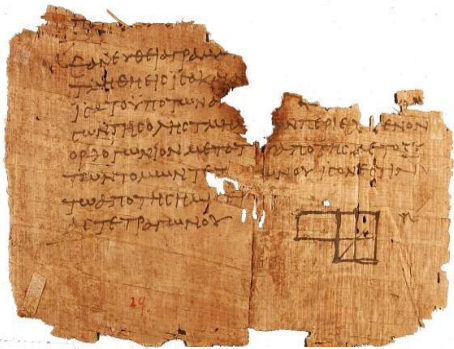 ΕΑΝ ΕΥΘΕΙΑ ΓΡΑΜ
ΤΜΗΘΗ ΕΙϹ ΙϹΑ ΚΑΙ
ΙϹΑ ΤΟ ΥΠΟ ΤΩΝ ΑΝ
ΤΗϹ ΟΛΗϹ ΤΜΗ ΩΝ ΠΕΡΙΕΧΟΜΕΝΟΝ
ΟΡΘΟΓΩΝΙΟΝ ΜΕΤΑ ΤΟΥ ΑΠΟ ΤΗϹ ΜΕΤΟΞΥ
ΤΩΝ ΤΟΜΩΝ ΤΕΤ ΩΝΟΥ ΙϹΟΝ ΕϹΤΙΝ
ΤΩ ΑΠΟ ΤΗϹ ΗΜΙϹΕΙ
ΑϹ ΤΕΤΡΑΓΩΝΟΥ
29.